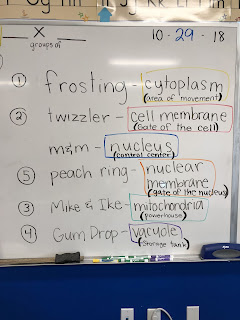 X
groups of
10 - 29 - 18
① frosting - cytoplasm
(area of movement)
② twizzler - cell membrane
(Gate of the cell)
m&m - nucleus
(control center)
⑤ peach ring - nuclear
membrane
(gate of the nucleus)
③ Mike & Ike - mitochondria
(powerhouse)
④ Gum Drop - vacuole
(storage tank)